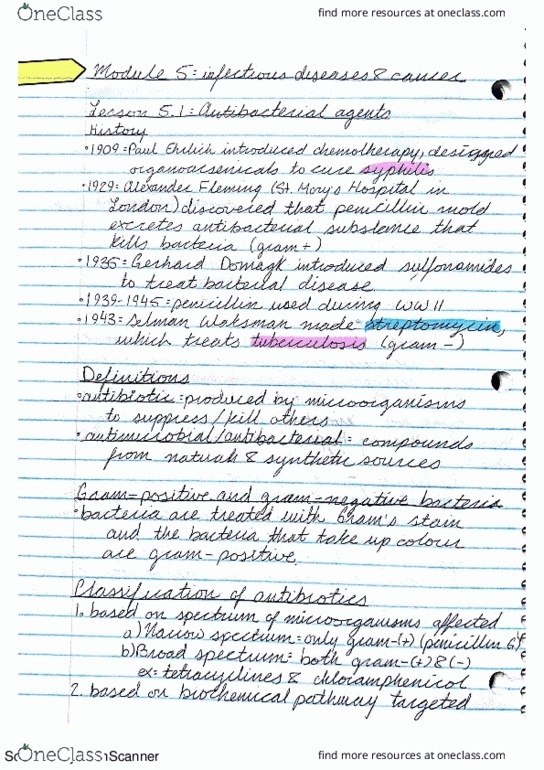 OneClass
find more resources at oneclass.com
Module 5: infectious diseases & cancer
Lesson 5.1: Antibacterial agents
History
• 1909: Paul Ehrlich introduced chemotherapy, designed
organoarsenicals to cure syphilis
• 1929: Alexander Fleming (St. Mary's Hospital in
London) discovered that penicillin mold
excretes antibacterial substance that
kills bacteria (gram +)
• 1935: Gerhard Domagk introduced sulfonamides
to treat bacterial disease
• 1939-1945: penicillin used during WWII
• 1943: Selman Waksman made streptomycin,
which treats tuberculosis (gram -)
Definitions
• antibiotic: produced by microorganisms
to suppress/kill others
• antimicrobial/antibacterial: compounds
from natural & synthetic sources
Gram-positive and gram-negative bacteria
• bacteria are treated with Gram's stain
and the bacteria that take up colour
are gram-positive.
Classification of antibiotics
1. based on spectrum of microorganisms affected
a) Narrow spectrum: only gram-(+) (penicillin G)
b) Broad spectrum: both gram-(+) & (-)
ex: tetracyclines & chloramphenicol
2. based on biochemical pathway targeted
OneClass
Scanner
find more resources at oneclass.com